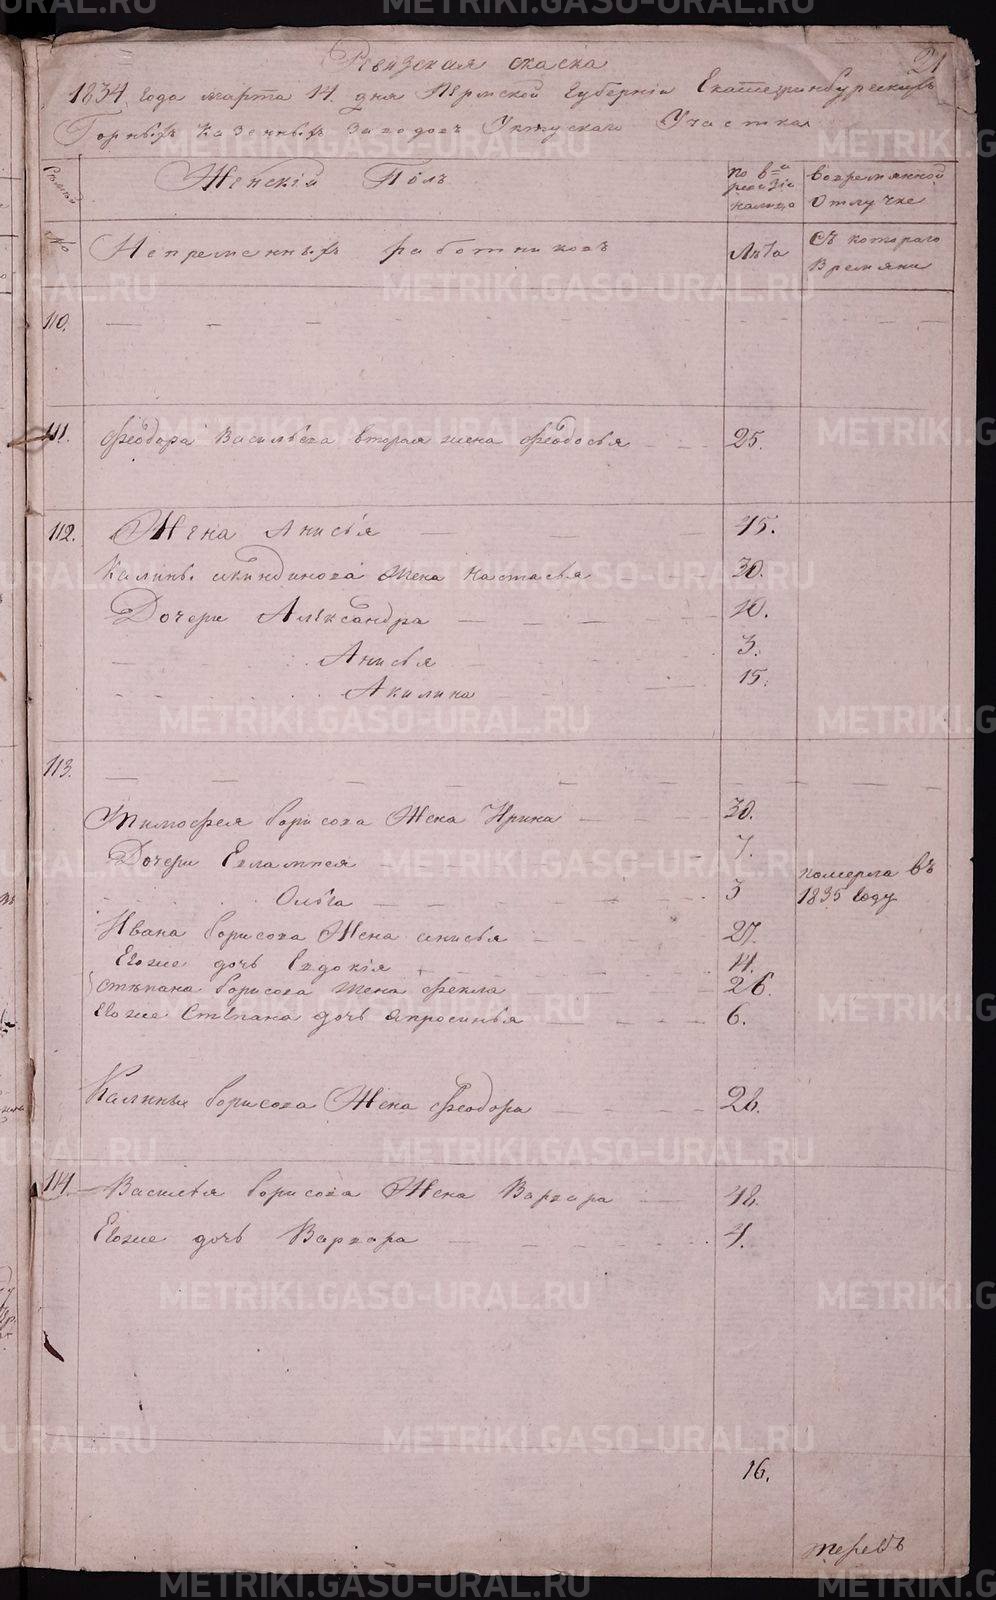 21
Ревизская скаска
1834 года марта 14 дня Пермской Губернiи Екатеринбургскихъ
Горныхъ казенныхъ заводовъ Уктускаго Участка
Женскiй Полъ
по 8й ревизiи налицо
во времянной отлучке
№
Непременныхъ работниковъ
Лѣта
Съ котораго времяни
110. — — —
111. Феодора Васильева вторая жена Феодосья 25.
112. Жена Анисья 45.
жена Настасья 30.
Дочери Александра 10.
Анисья 3.
Акилина 15.
113. — — —
Тимофея Борисова Жена Ирина 30.
Дочери Евлампея 7.
Ольга 3 померла въ 1835 году
Ивана Борисова Жена анисья 27.
Евоже дочь Евдокiя 4.
Стѣпана Борисова жена фекла 26.
Евоже Стѣпана дочь апросинья 6.
Калины Борисова Жена феодора 26.
114. Василья Борисова Жена Варвара 48.
Евоже дочь Варвара 4.
16.
METRIKI.GASO-URAL.RU